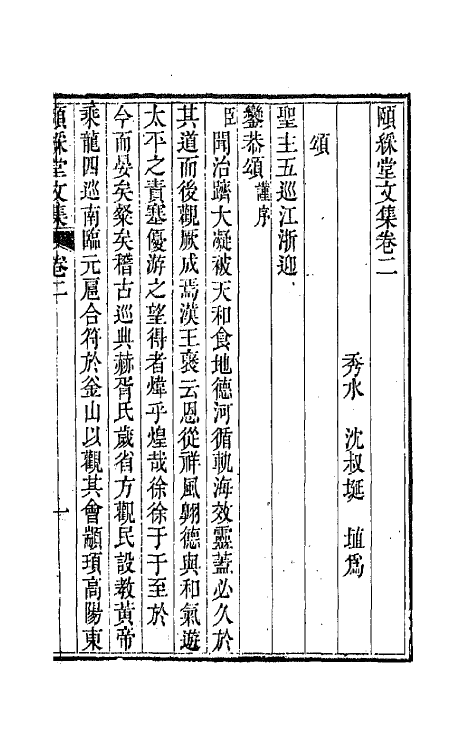 頤綵堂文集卷二
秀水 沈叔埏 埴爲
頌
聖主五巡江浙迎
鑾恭頌 謹序
臣聞治躋大凝被天和食地德河循軌海效靈蓋必久於
其道而後觀厥成焉漢王襃云恩從祥風翺德與和氣遊
太平之責塞優游之望得者煒乎煌哉徐徐于于至於
今而晏矣粲矣稽古巡典赫胥氏歲省方觀民設教黃帝
乘龍四巡南臨元扈合符於釜山以觀其會顓頊高陽東
頤綵堂文集 卷二 一